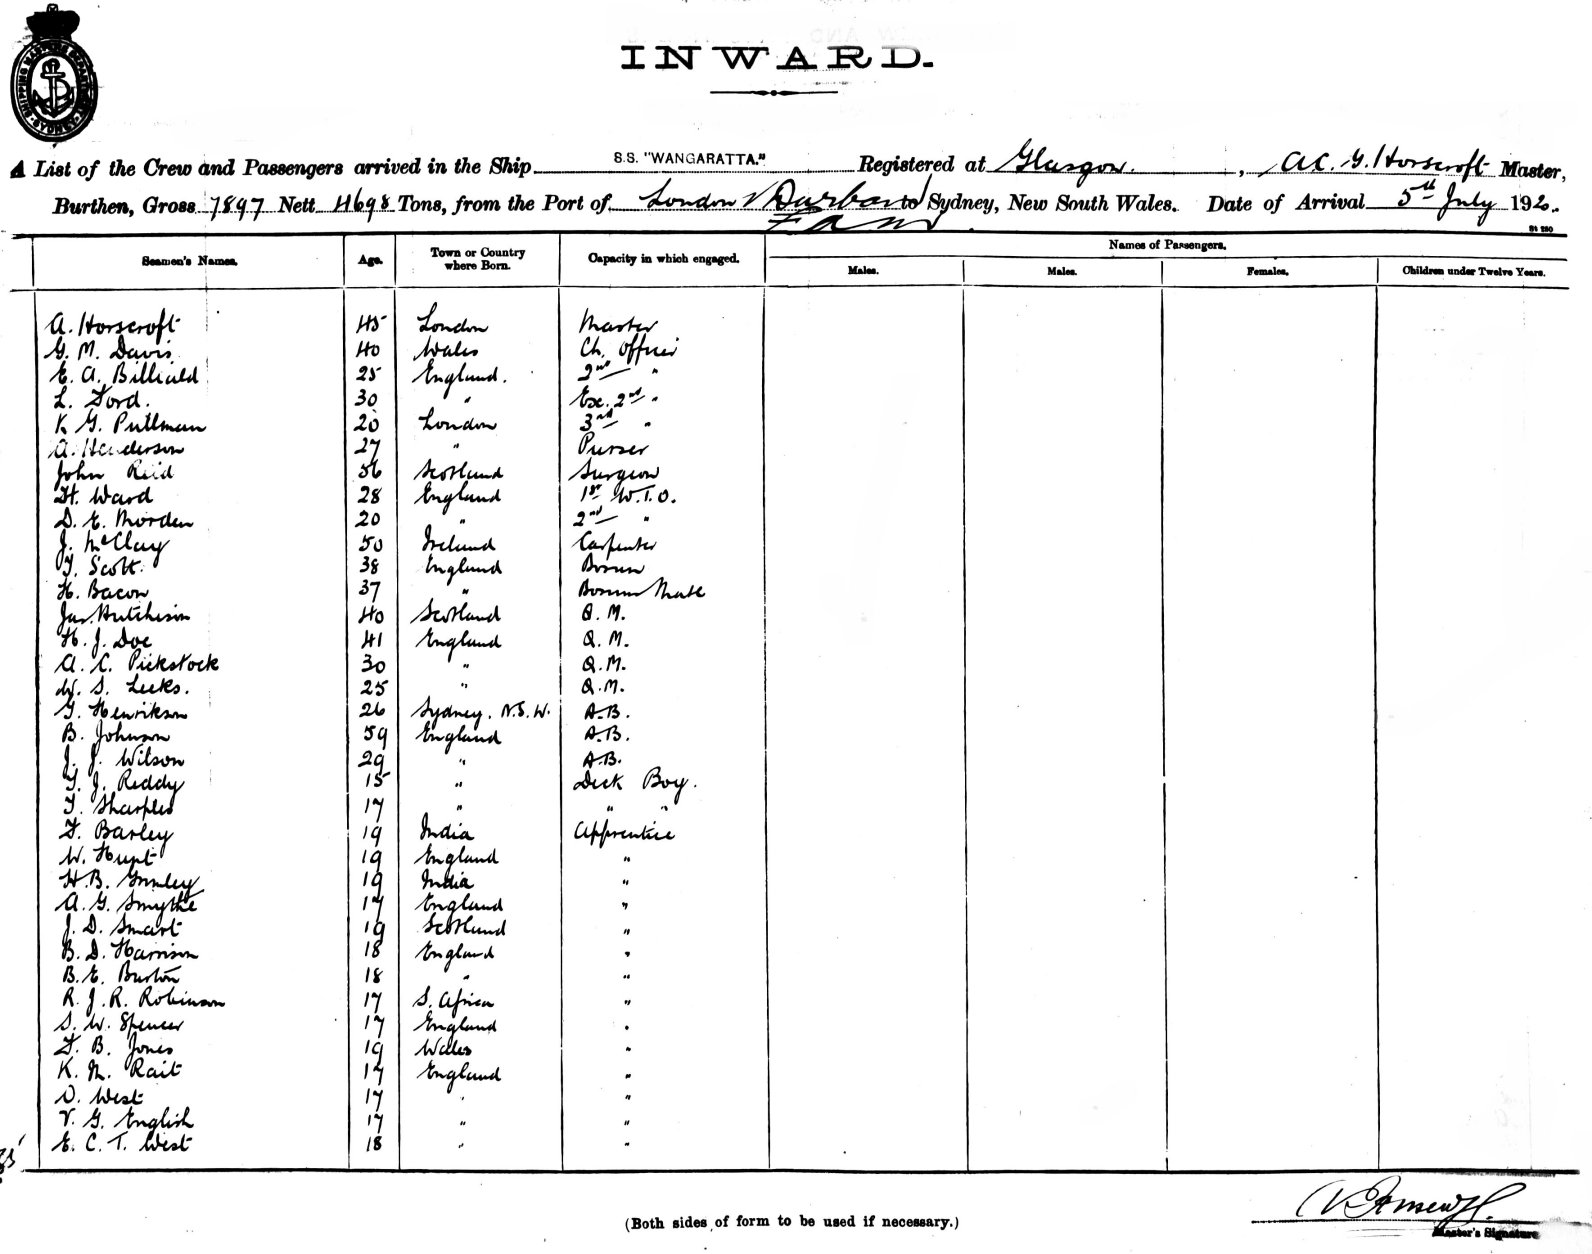 SHIPPING MASTERS DEPARTMENT SYDNEY
INWARD.
A List of the Crew and Passengers arrived in the Ship S.S. "WANGARATTA." Registered at Glasgow. , A.C. G. Horscroft Master,
Burthen, Gross 7897 Nett 4698 Tons, from the Port of London v Durban to Sydney, New South Wales. Date of Arrival 5th July 192
Seamen's Names. Age. Town or Country where Born. Capacity in which engaged. Names of Passengers.
Males. Males. Females. Children under Twelve Years.
A. Horscroft 45 London Master
G. M. Davis 40 Wales Ch. Officer
E. A. Billiald 25 England. 2nd "
L. Ford. 30 " Ex. 2nd "
K G. Pullman 20 London 3rd "
A. Henderson 27 " Purser
John Reid 56 Scotland Surgeon
H. Ward 28 England 1st W.T.O.
D. E. Morden 20 " 2nd "
J. McClay 50 Ireland Carpenter
T. Scott. 38 England Bosun
H. Bacon 37 " Bosuns Mate
Jas. Hutchison 40 Scotland Q.M.
H. J. Doe 41 England Q.M.
A. C. Pickstock 30 " Q.M.
W. S. Leeks. 25 " Q.M.
G. Henrikson 26 Sydney. N.S.W. A.B.
B. Johnson 59 England A.B.
J. J. Wilson 29 " A.B.
T. J. Reddy 15 " Deck Boy.
T. Sharples 17 " " "
F. Barley 19 India Apprentice
W. Hunt 19 England "
H. B. 19 India "
A. G. Smythe 17 England "
J. D. Smart 19 Scotland "
B. D. Harrison 18 England "
B. E. Burton 18 " "
R. J. R. Robinson 17 S. Africa "
S. W. Spencer 17 England "
F. B. Jones 19 Wales "
K. M. Rait 17 England "
O. West 17 " "
V. G. English 17 " "
E. C. T. West 18 " "
(Both sides of form to be used if necessary.)
Master's Signature